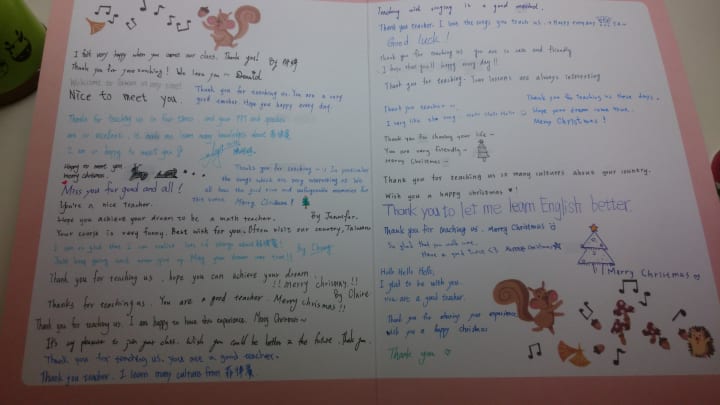 I felt very happy when you comes our class. Thank you!
Thank you for your teaching! We love you ~ David
Nice to meet you.
Thank you for teaching us. You are a very
good teacher. Hope you happy every day.
Thanks for teaching us in four times, and your PPT and speaking
are so excellent. It made me learn many knowledge about
I am so happy to meet you
Happy to meet you
merry christmas.
Thanks you for teaching
the songs which are very interesting. We
all have the good time and unforgettable memories for
this winter. Merry Christmas!
Miss you for good and all!
You're a nice teacher.
Hope you achieve your dream to be a math teacher. By Jennifer.
Your course is very funny. Best wish for you. Often visit our country, Taiwan
I am so glad that I can realize lots of things about
Just keep going and never give up. May your dream come true!!
Thank you for teaching us, hope you can achieve your dream
!! merry chrismas !!
Thanks for teaching us. You are a good teacher. Merry chrismas!! By Claire
Thank you for teaching us. I am happy to have this experience. Merry Christmas~
It's my pleasure to join your class. Wish you could be better in the future. Thank you.
Thank you for teaching us. you are a good teacher.
Thank you teacher. I learn many culture from 菲律賓.
Teaching with singing is a good method.
Thank you teacher. I love the songs you teach us.
Good luck!
Thank you for teaching us you are so cute and friendly
I hope that you'll happy every day!!
Thank you for teaching. Your lessons are always interesting
Thank you teacher ~
I very like the song. Hello Hello Hello
Thank you for teaching us these days.
Hope your dream come true.
Merry Christmas!
Thank you for sharing your life ~
You are very friendly ~
merry Christmas ~
Thank you for teaching us so many cultures about your country.
Wish you a happy christmas
Thank you to let me learn English better.
Thank you for teaching us. Merry Christmas
So glad that you with us.
Have a good time <3
Merry Christmas
Hello Hello Hello,
I glad to be with you.
You are a good teacher.
Thank you for sharing your experience
Wish you a happy Christmas
Thank you